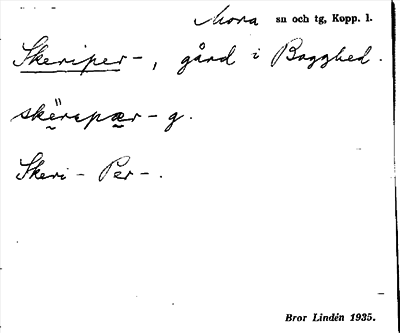 Mora sn och tg, Kopp. l.
Skeriper-, gård i Bagghed.
skërɛpær- g.
Skeri- Per-.
Bror Lindén 1935.